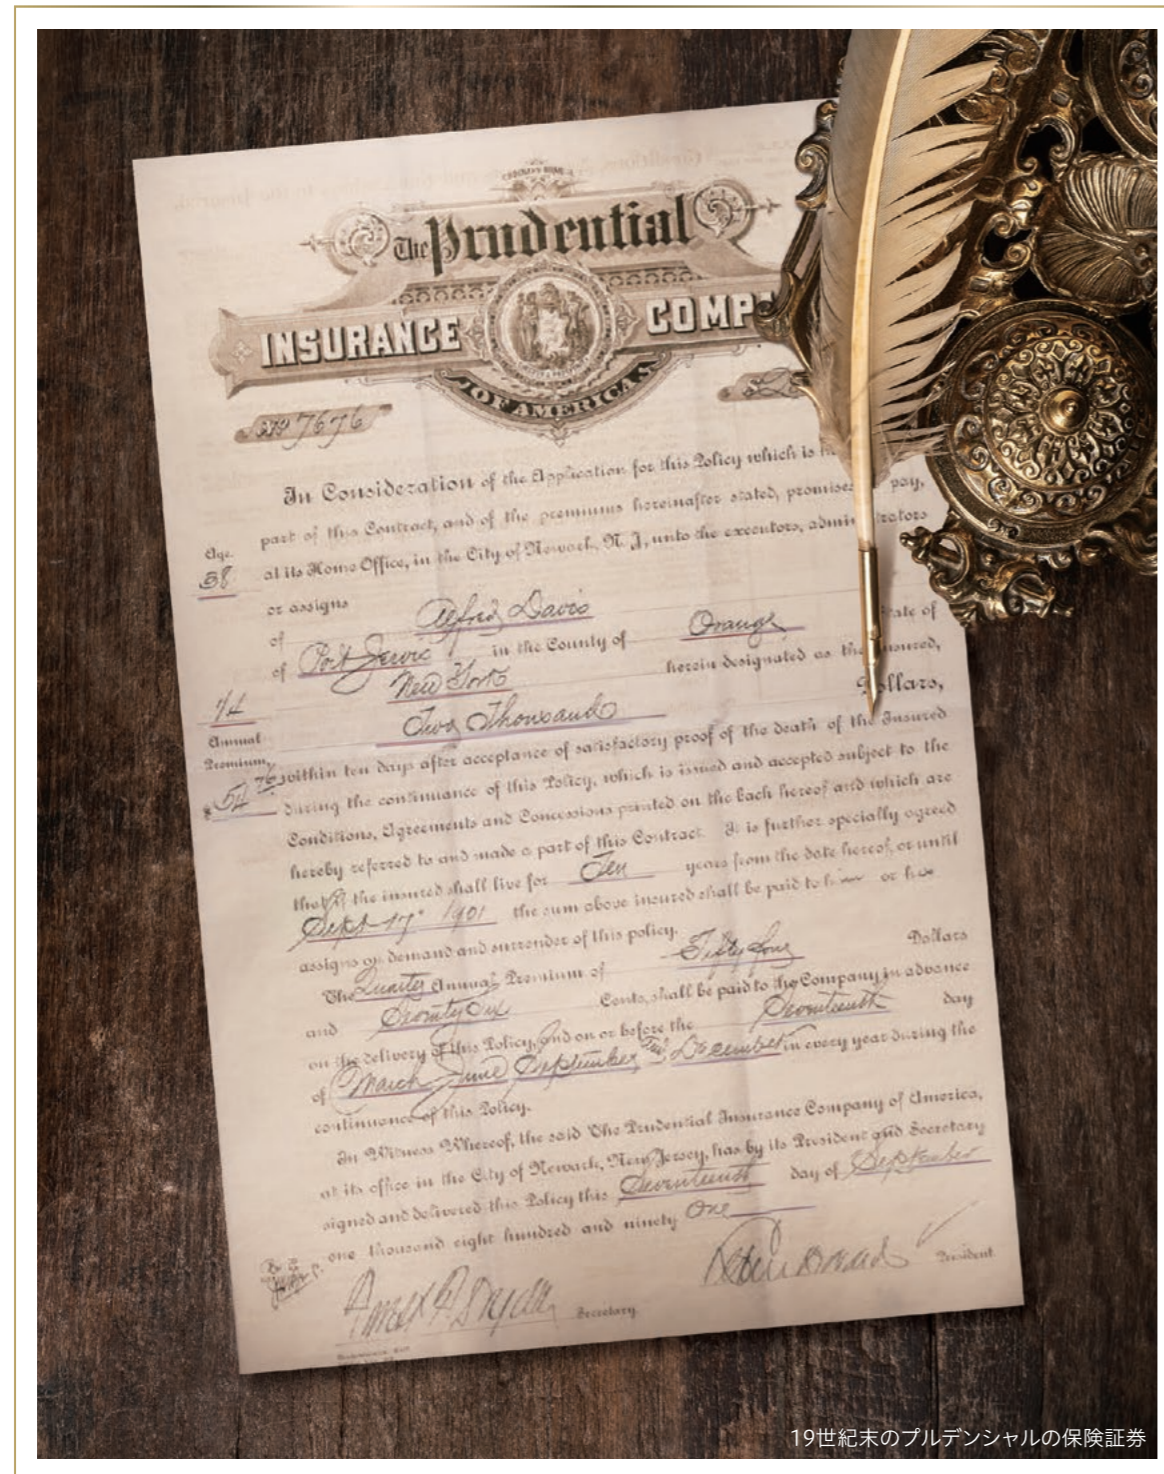 The Prudential
INSURANCE COMP
OF AMERICA
No 7676
In Consideration of the Application for this Policy which is
part of this Contract, and of the premiums hereinafter stated, promises pay,
at its Home Office, in the City of Newark, N. J., unto the executors, administrators
Age
38
or assigns
of Alfred Davis
of Port Jervis in the County of Orange State of
New York herein designated as the Insured,
Two Thousand Dollars,
1/4
Annual
Premium,
$54 76
within ten days after acceptance of satisfactory proof of the death of the Insured
during the continuance of this Policy, which is issued and accepted subject to the
Conditions, Agreements and Concessions printed on the back hereof and which are
hereby referred to and made a part of this Contract. It is further specially agreed
that if the insured shall live for Ten years from the date hereof, or until
Sept 17" 1901 the sum above insured shall be paid to
assigns on demand and surrender of this policy.
The Quarter Annual Premium of Fifty four Dollars
and Seventy Six Cents, shall be paid to the Company in advance
on the delivery of this Policy, and on or before the Seventeenth day
of March June September December in every year during the
continuance of this Policy.
In Witness Whereof, the said The Prudential Insurance Company of America,
at its office in the City of Newark, New Jersey, has by its President and Secretary
signed and delivered this Policy this Seventeenth day of September
one thousand eight hundred and ninety One
President
Secretary
19世紀末のプルデンシャルの保険証券